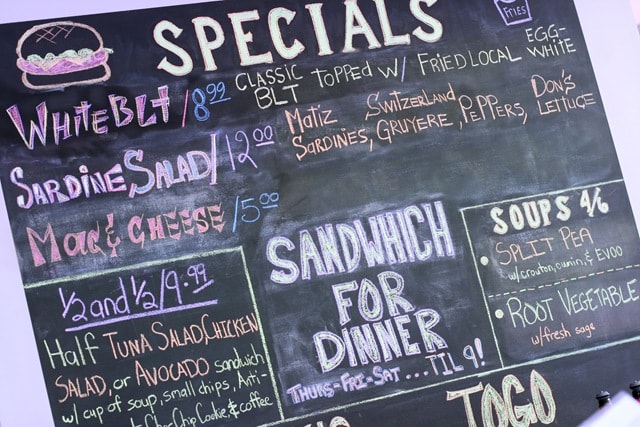 SPECIALS
FRIES
WHITE BLT / 8.99 CLASSIC BLT TOPPED W/ FRIED LOCAL EGG-WHITE
SARDINE SALAD / 12.00 MATIZ SARDINES, SWITZERLAND GRUYERE, PEPPERS, DON'S LETTUCE
MAC & CHEESE / 5.00
1/2 and 1/2 / 9.99
Half TUNA SALAD, CHICKEN
SALAD, or AVOCADO sandwich
w/ cup of soup, small chips, Anti-
Choc Chip Cookie, & coffee
SANDWHICH
FOR
DINNER
THURS-FRI-SAT...TIL 9!
SOUPS 4/6
• SPLIT PEA
w/crouton, cumin, & EVOO
• ROOT VEGETABLE
w/fresh sage
TOGO